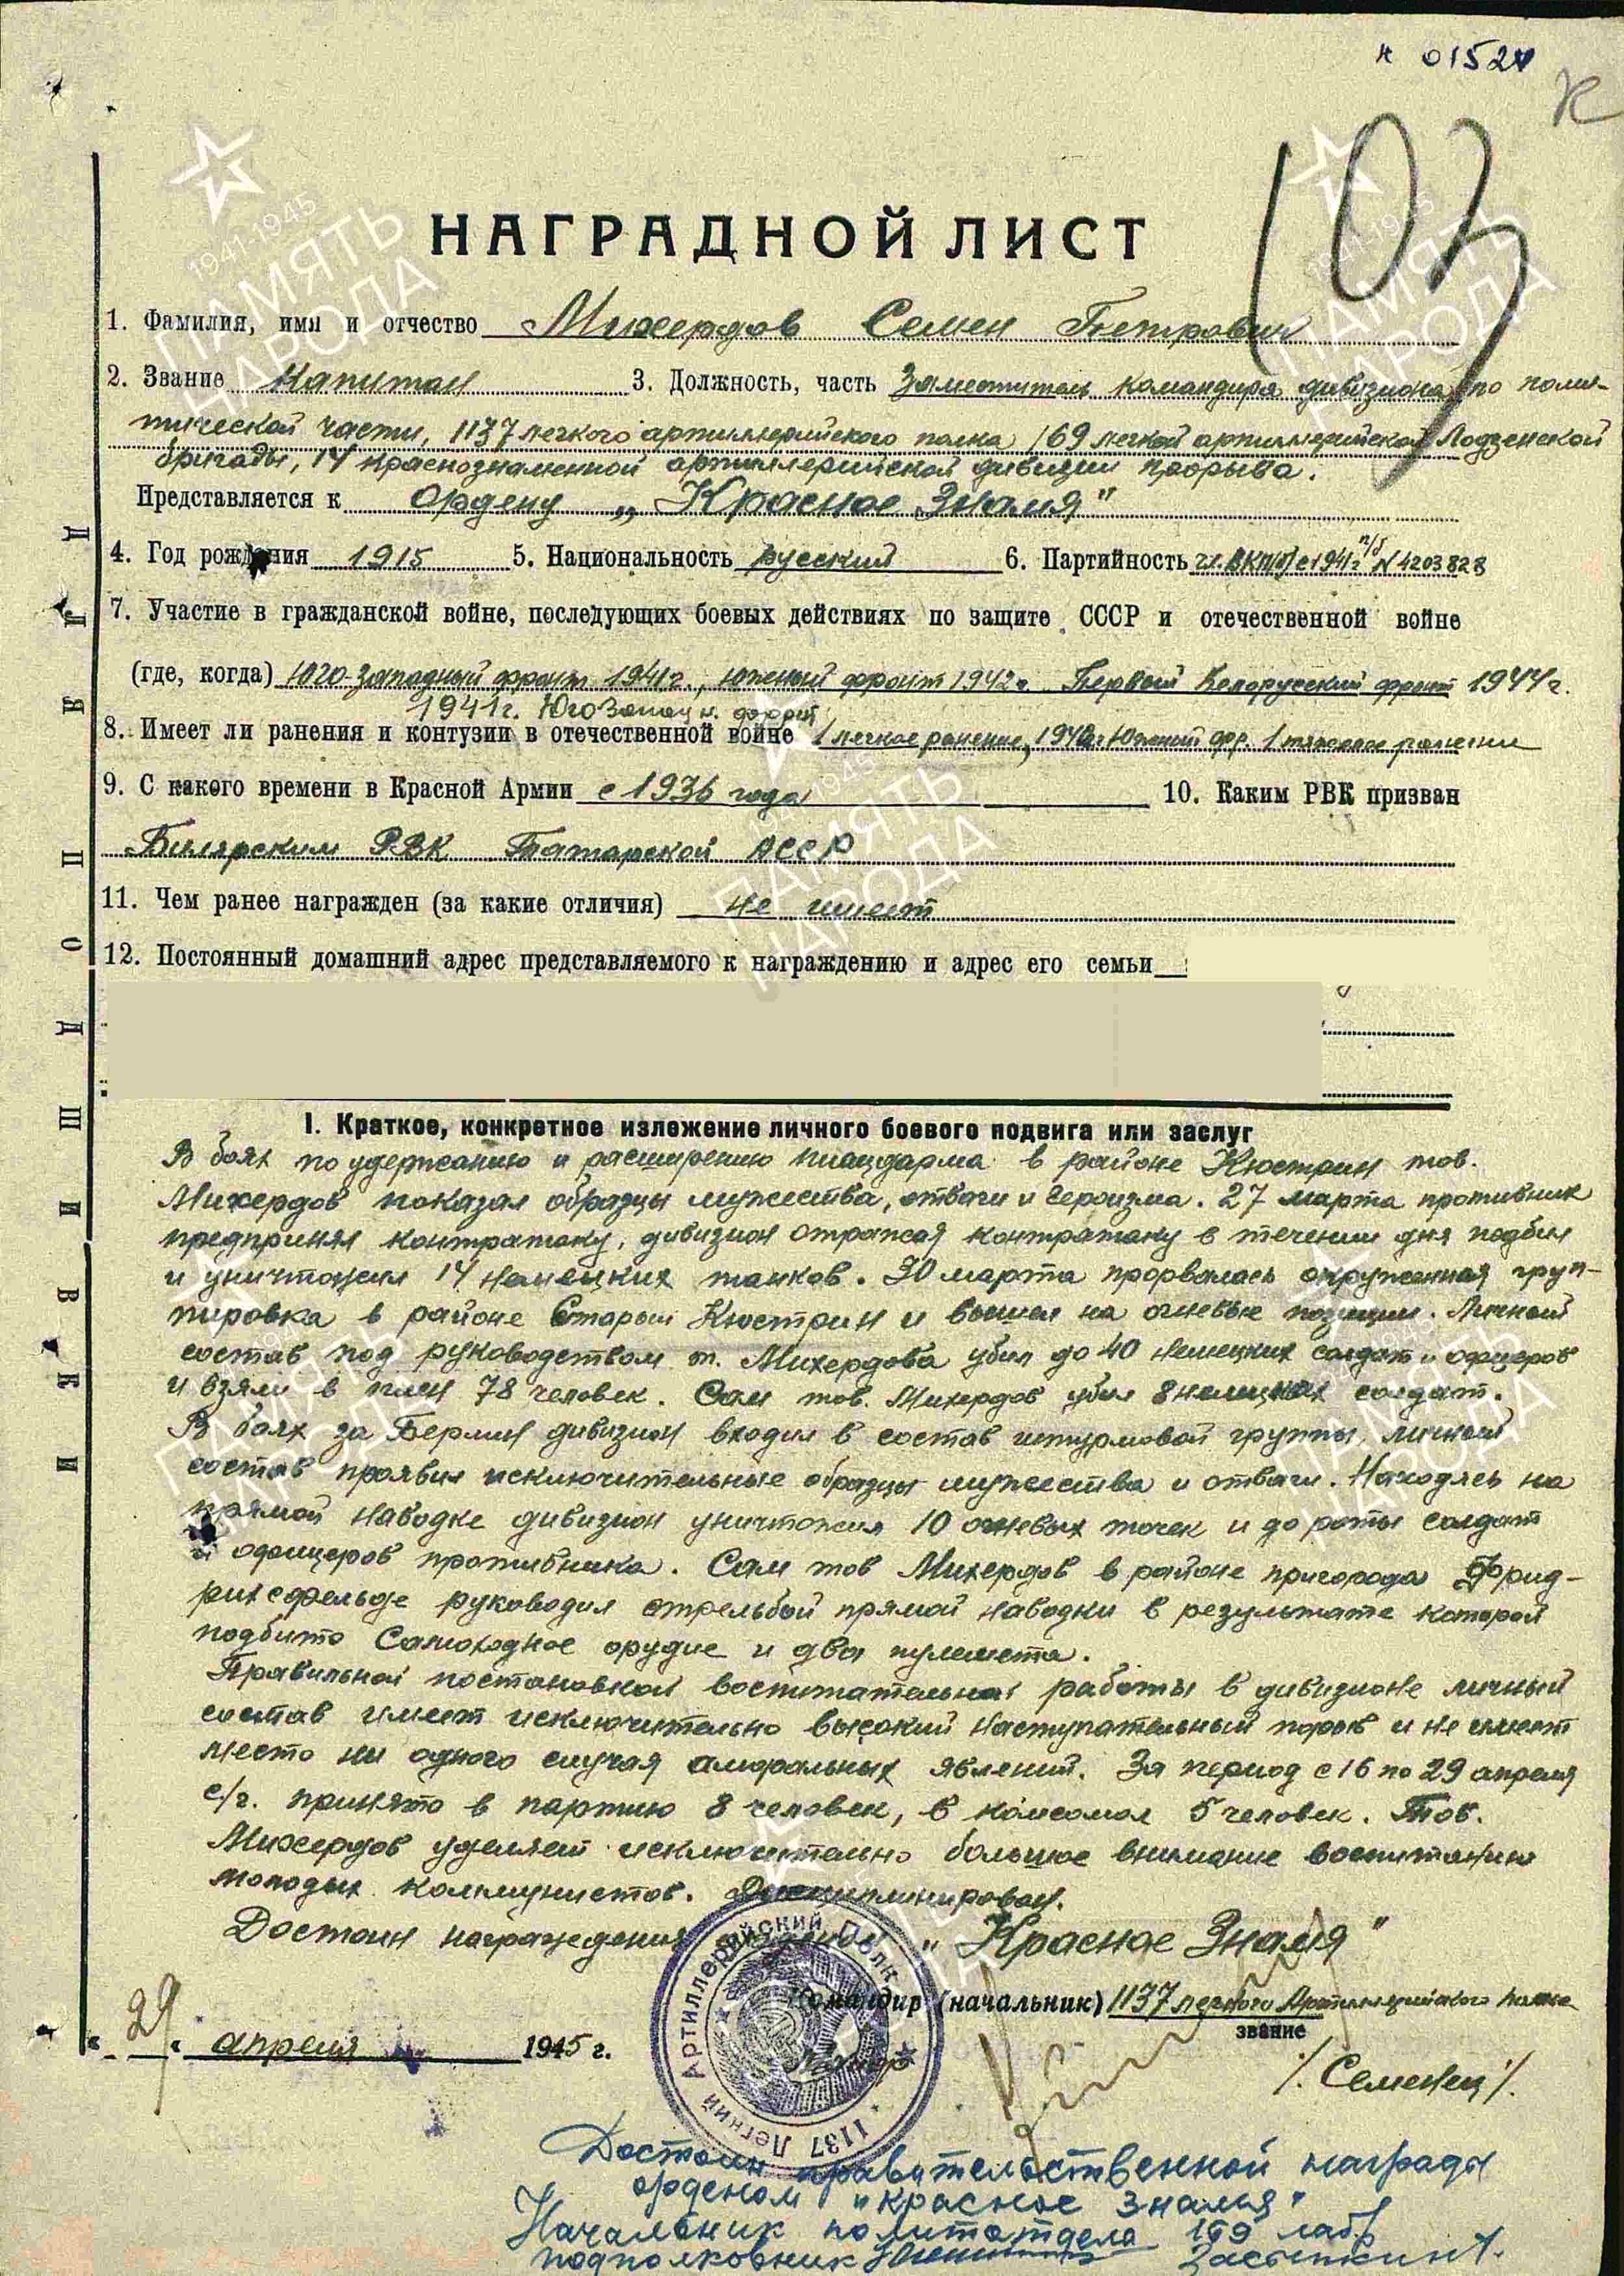 н 01527
К
103
НАГРАДНОЙ ЛИСТ
1. Фамилия, имя и отчество Михердов Семен Петрович
2. Звание Капитан 3. Должность, часть Заместитель командира дивизиона по поли-
тической части, 1137 легкого артиллерийского полка 169 легкой артиллерийской Лодзенской
бригады, 14 краснознаменной артиллерийской дивизии прорыва.
Представляется к Ордену „Красное Знамя"
4. Год рождения 1915 5. Национальность русский 6. Партийность чл. ВКП(б) с 1941г п/б N 4203828
7. Участие в гражданской войне, последующих боевых действиях по защите СССР и отечественной войне
(где, когда) Юго-Западный фронт 1941г., Южный фронт 1942г. Первый Белорусский фронт 1944г.
1941г. Юго Запад
8. Имеет ли ранения и контузии в отечественной войне 1 легкое ранение, Южный фр. 1 тяжелое ранение
9. С какого времени в Красной Армии с 1936 года 10. Каким РВК призван
Билярским РВК Татарской АССР
11. Чем ранее награжден (за какие отличия) не имеет
12. Постоянный домашний адрес представляемого к награждению и адрес его семьи
I. Краткое, конкретное изложение личного боевого подвига или заслуг
В боях по удержанию и расширению плацдарма в районе Кюстрин тов.
Михердов показал образцы мужества, отваги и героизма. 27 марта противник
предпринял контратаку, дивизион отражая контратаку в течении дня подбил
и уничтожил 14 немецких танков. 30 марта прорвалась окруженная груп-
пировка в районе Старый Кюстрин и вышел на огневые позиции. Личный
состав под руководством т. Михердова убил до 40 немецких солдат и офицеров
и взяли в плен 78 человек. Сам тов. Михердов убил 8 немецких солдат.
В боях за Берлин дивизион входил в состав штурмовой группы, личный
состав проявил исключительные образцы мужества и отваги. Находясь на
прямой наводке дивизион уничтожил 10 огневых точек и до роты солдат
и офицеров противника. Сам тов Михердов в районе пригорода Фрид-
рихсфельде руководил стрельбой прямой наводки в результате которой
подбито Самоходное орудие и два пулемета.
Правильной постановкой воспитательной работы в дивизионе личный
состав имеет исключительно высокий наступательный порыв и не имеет
место ни одного случая аморальных явлений. За период с 16 по 29 апреля
с/г. принято в партию 8 человек, в комсомол 5 человек. Тов.
Михердов уделяет исключительно большое внимание воспитанию
молодых коммунистов. Дисциплинирован.
Достоин награждения орденом „Красное Знамя"
Командир (начальник) 1137 легкого Артиллерийского полка
звание
„29" апреля 1945 г.
/. Семенец /.
1137 Легкий Артиллерийский Полк
Достоин правительственной награды
орденом „Красное Знамя"
Начальник политотдела 169 лабр
подполковник Засыпкин
ПОДШИВКИ
ДЛЯ
ПАМЯТЬ НАРОДА
1941-1945